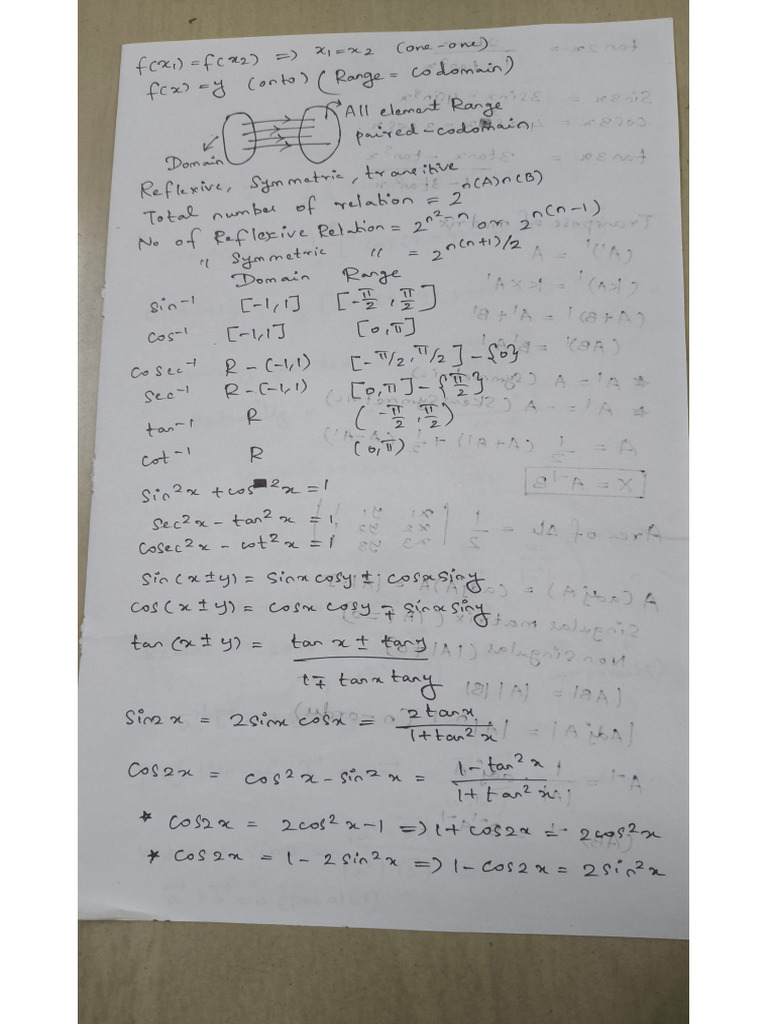 f(x₁) = f(x₂) => x₁ = x₂ (one-one)
f(x) = y (onto) (Range = codomain)
All element Range
paired-codomain
Domain
Reflexive, Symmetric, transitive
Total number of relation = 2^n(A)n(B)
No of Reflexive Relation = 2^n²-n or 2^n(n-1)
" Symmetric " = 2^n(n+1)/2
Domain Range
sin⁻¹ [-1,1] [-π/2, π/2]
cos⁻¹ [-1,1] [0,π]
cosec⁻¹ R-(-1,1) [-π/2, π/2]-{0}
sec⁻¹ R-(-1,1) [0,π]-{π/2}
tan⁻¹ R (-π/2, π/2)
cot⁻¹ R (0,π)
sin²x + cos²x = 1
sec²x - tan²x = 1
cosec²x - cot²x = 1
sin(x±y) = sinx cosy ± cosx siny
cos(x±y) = cosx cosy ∓ sinx siny
tan(x±y) = (tan x ± tany)/(1∓ tanx tany)
Sin2x = 2sinx cosx = 2tanx/(1+tan²x)
Cos2x = cos²x - sin²x = (1-tan²x)/(1+tan²x)
* cos2x = 2cos²x-1 => 1+cos2x = 2cos²x
* cos2x = 1-2sin²x => 1-cos2x = 2sin²x